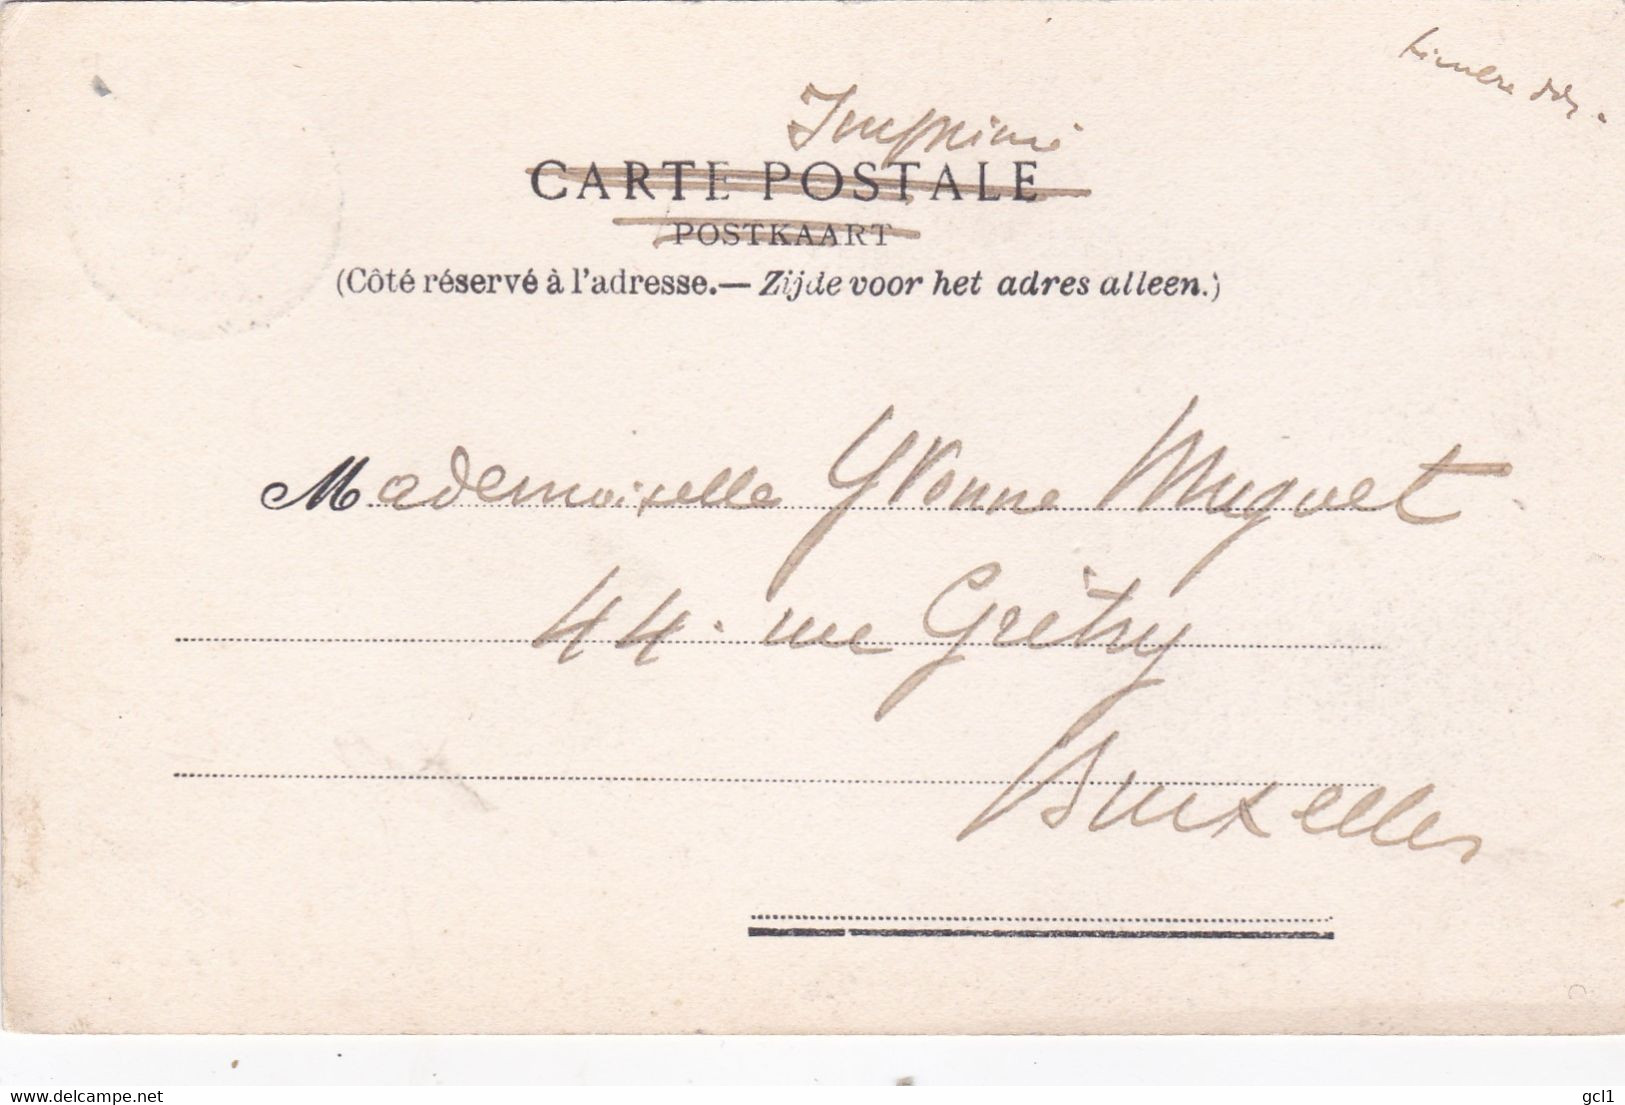 timbre
Imprimé
CARTE POSTALE
POSTKAART
(Côté réservé à l'adresse.— Zijde voor het adres alleen.)
Mademoiselle Yvonne Muguet
44. rue Grétry
Bruxelles
delcampe.net
gcl1